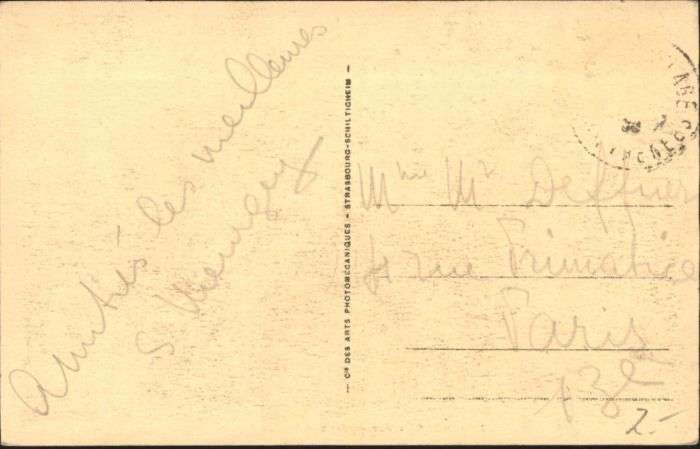 Amitiés les meilleures
S
Cie DES ARTS PHOTOMÉCANIQUES - STRASBOURG-SCHILTIGHEIM
Mme Mr Deffner
rue Primatice
Paris
13e
2-